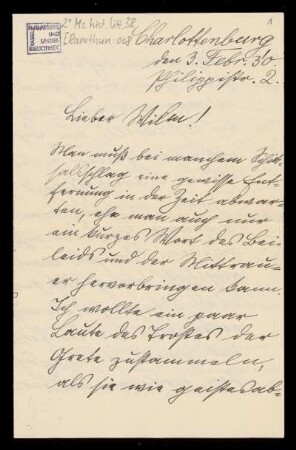 2° Ms. hist. litt. 38
1
Charlottenburg
den 3. Febr. 30
Philippistr. 2.
Lieber Wilm!
Man muß bei manchem Schick-
salsschlag eine gewisse Ent-
fernung in der Zeit abwar-
ten, ehe man auch nur
ein kurzes Wort des Bei-
leids und der Mittrau-
er hervorbringen kann.
Ich wollte ein paar
Laute des Trostes der
Grete zustammeln,
als sie wie geistesab-